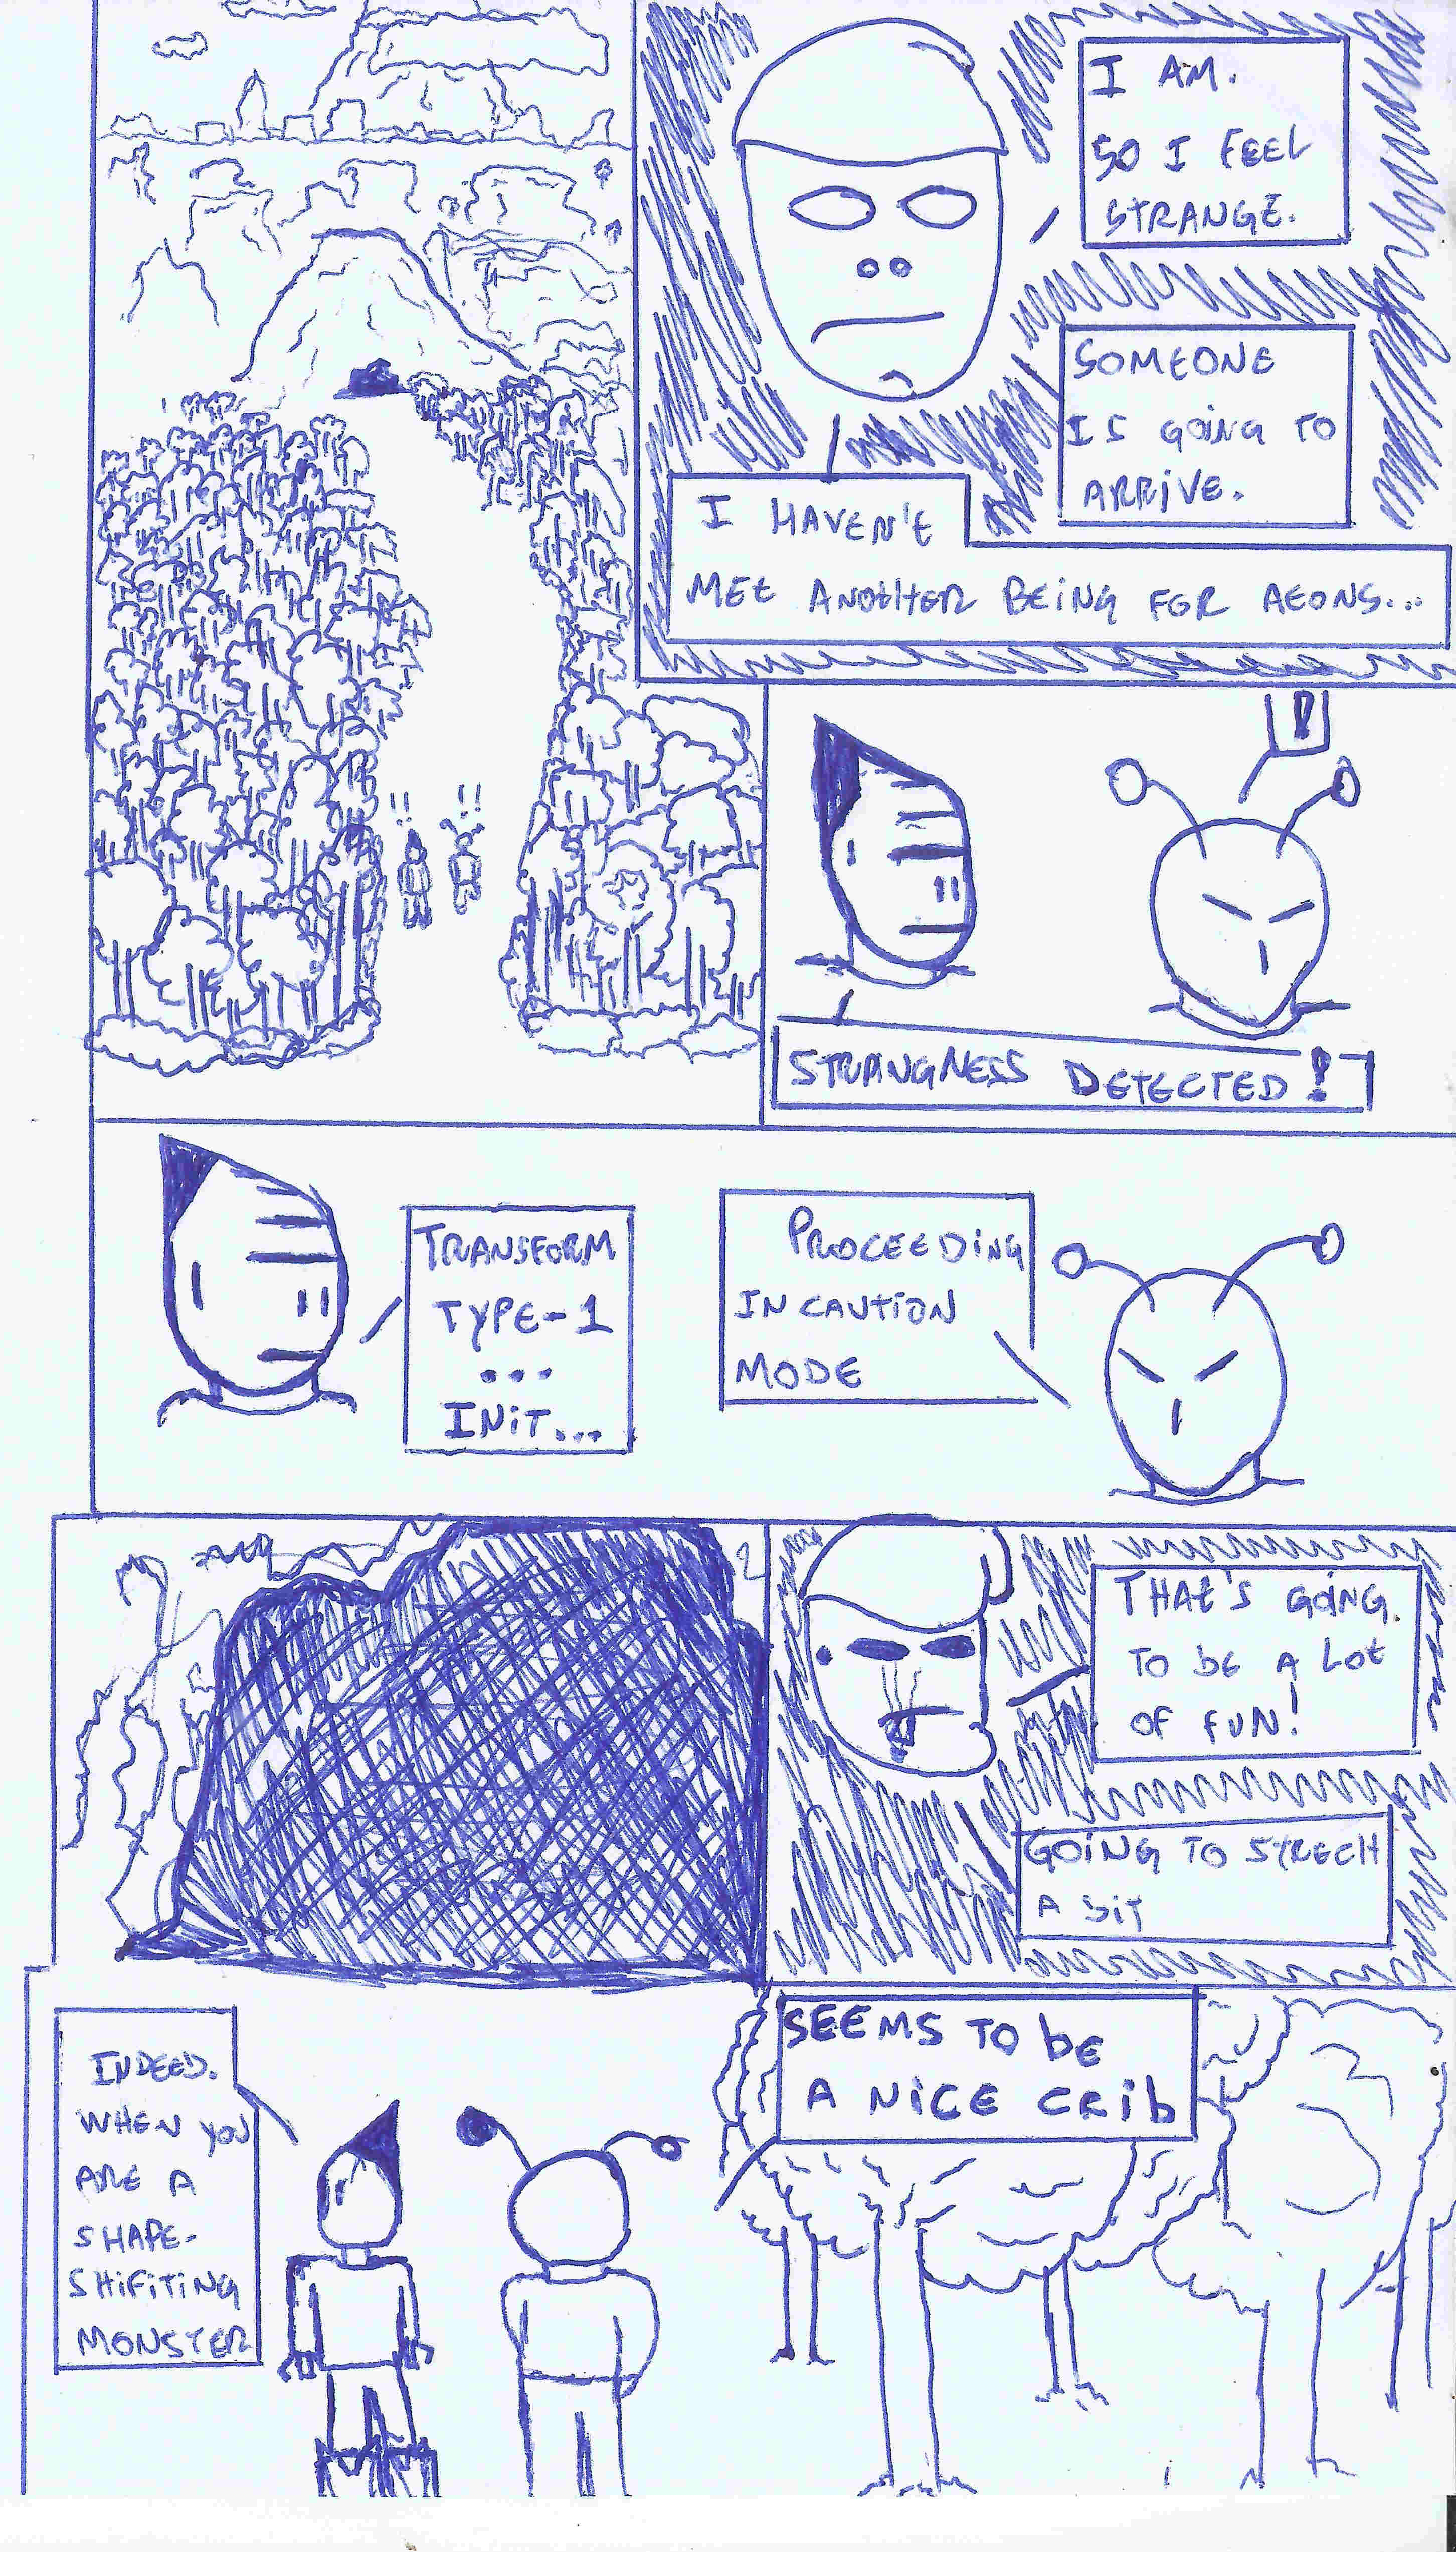 I AM.
SO I FEEL
STRANGE.
SOMEONE
IS GOING TO
ARRIVE.
I HAVEN't
MEt ANOtHER BEiNG FOR AEONS...
!!
!!
!
STRANGNESS DETECTED!
TRANSFORM
TYPE-1
...
INiT...
PROCEEDiNG
IN CAUTiON
MODE
THAt'S GOING
TO bE A LOt
OF FUN!
GOiNG TO STRECH
A biT
SEEMS TO bE
A NiCE CRib
INDEED.
WHEN YOU
ARE A
SHAPE-
SHiFiTiNG
MONSTER